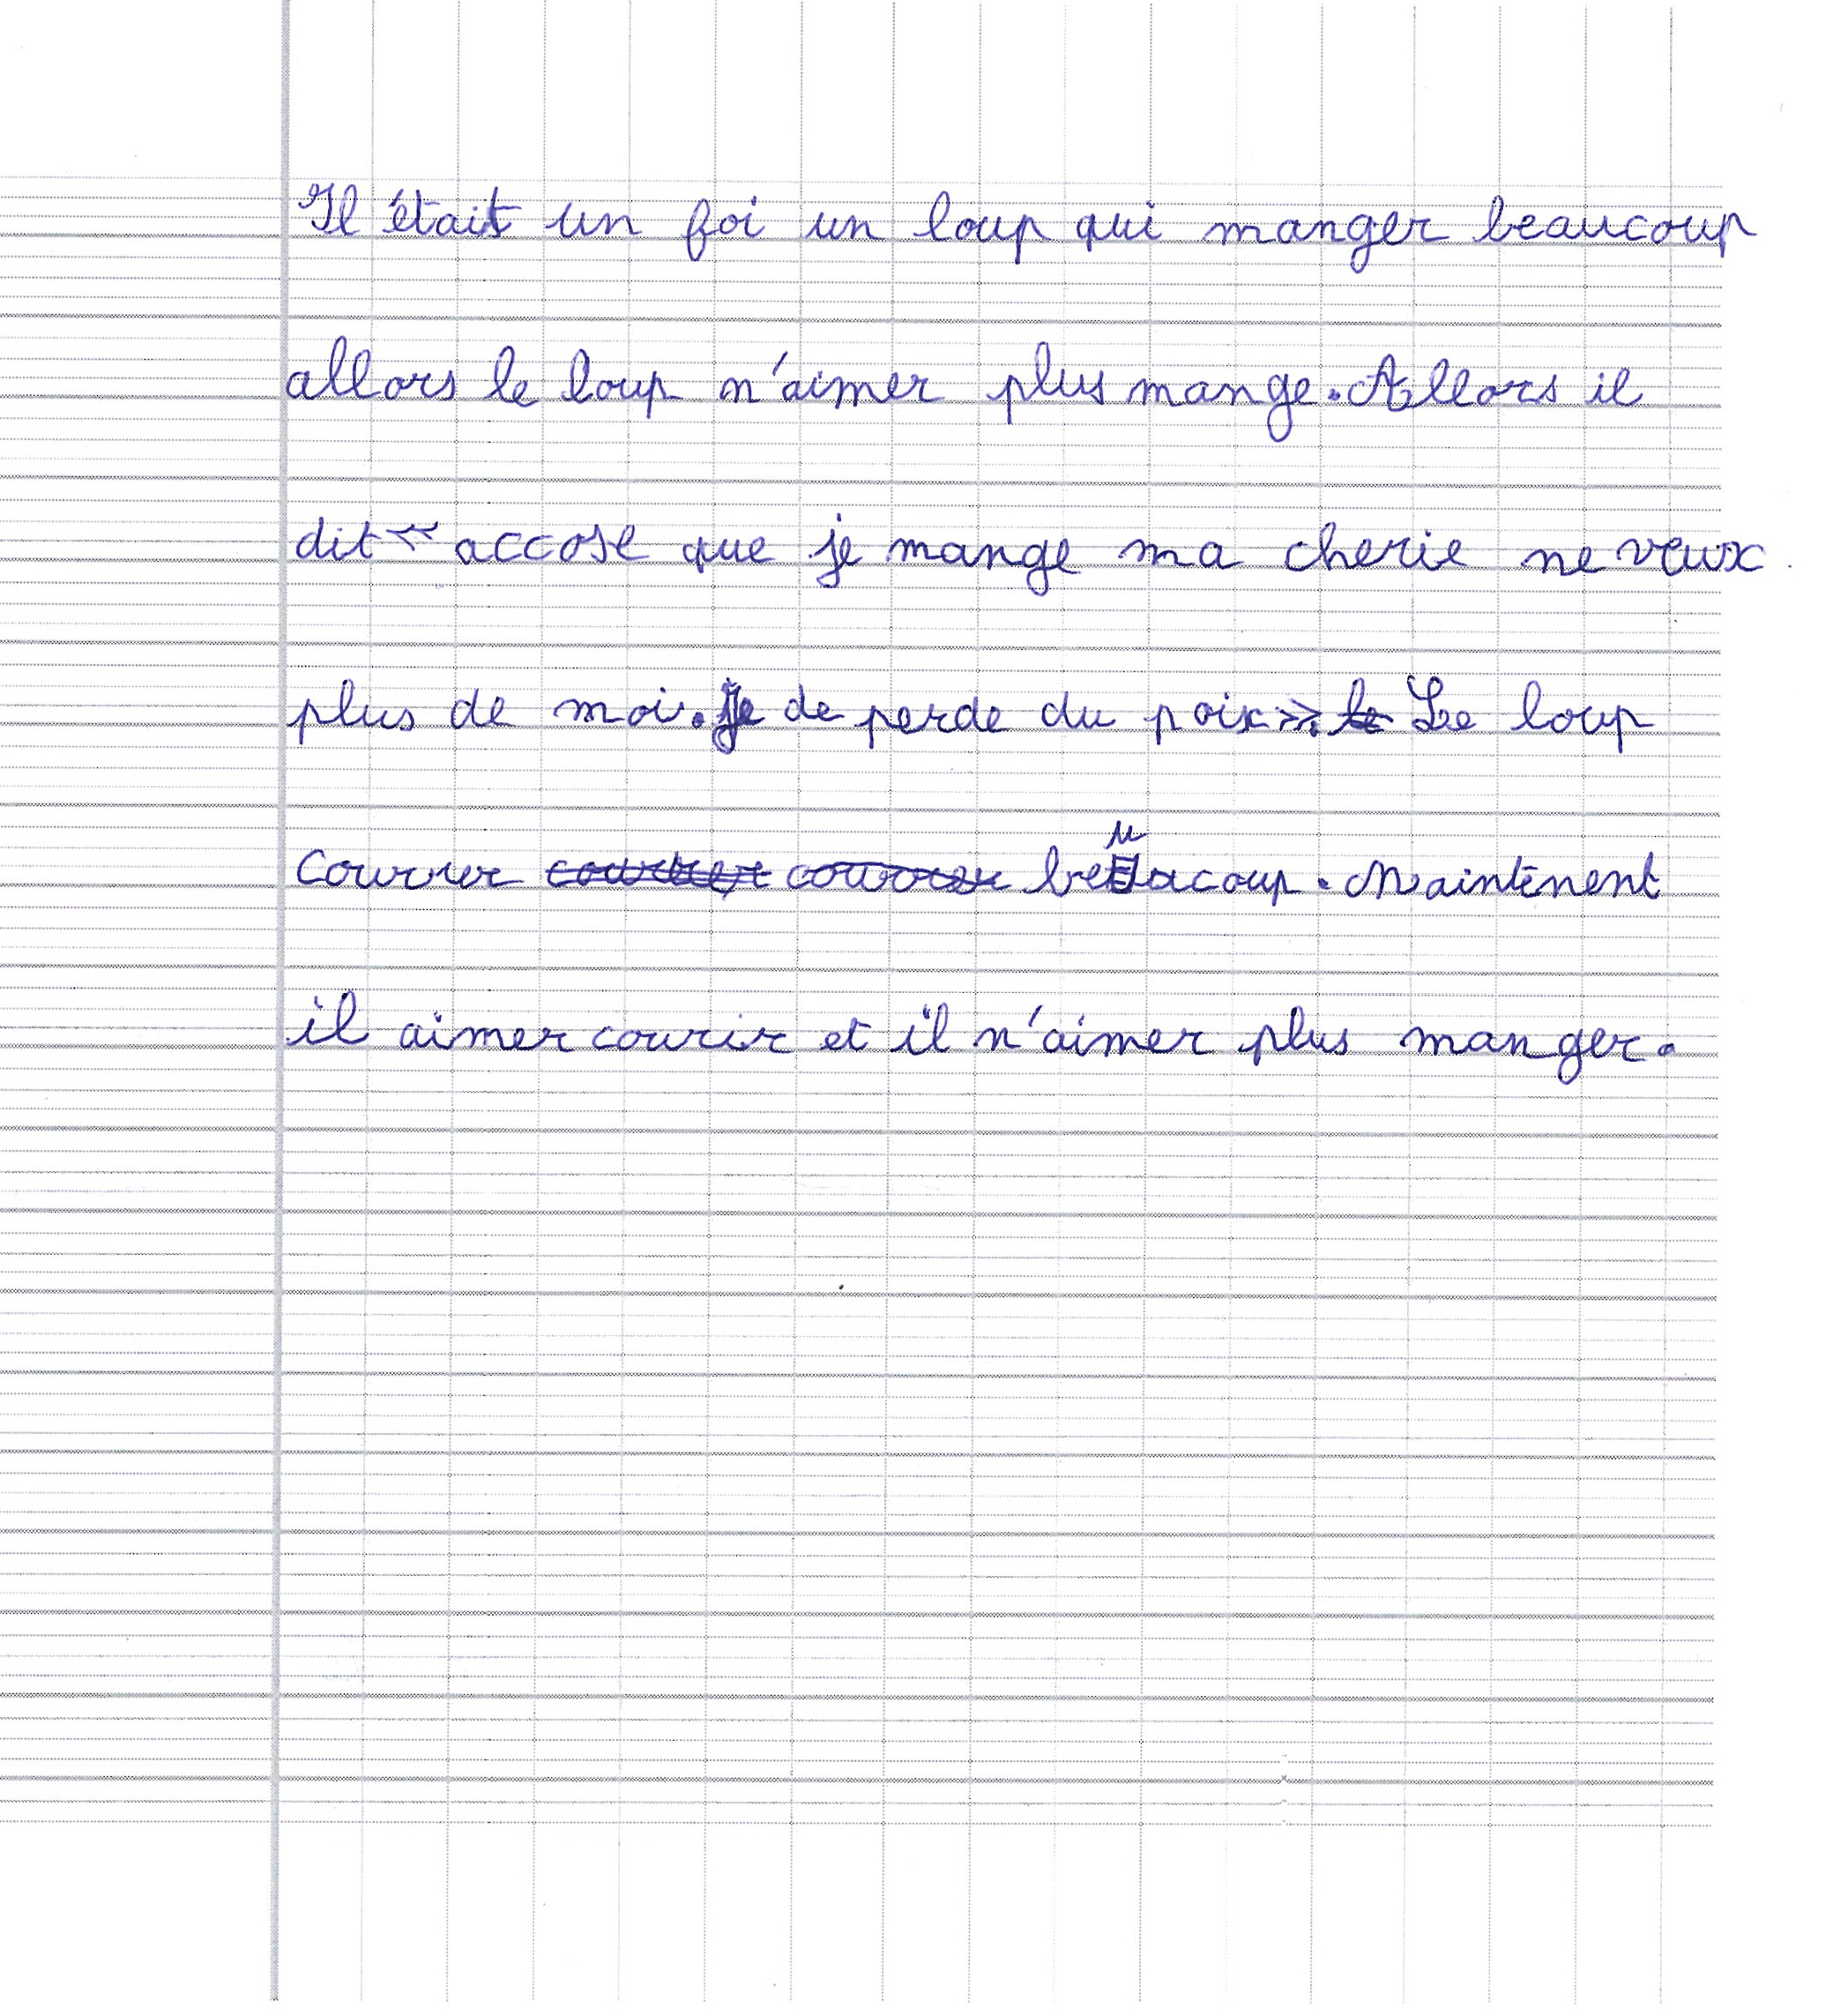 Il était un foi un loup qui manger beaucoup
allors le loup n'aimer plus mange. Allors il
dit « accose que je mange ma cherie ne veux
plus de moi. je de perde du poix ». le Le loup
courrer beuacoup. Maintenent
il aimer courir et il n'aimer plus manger.